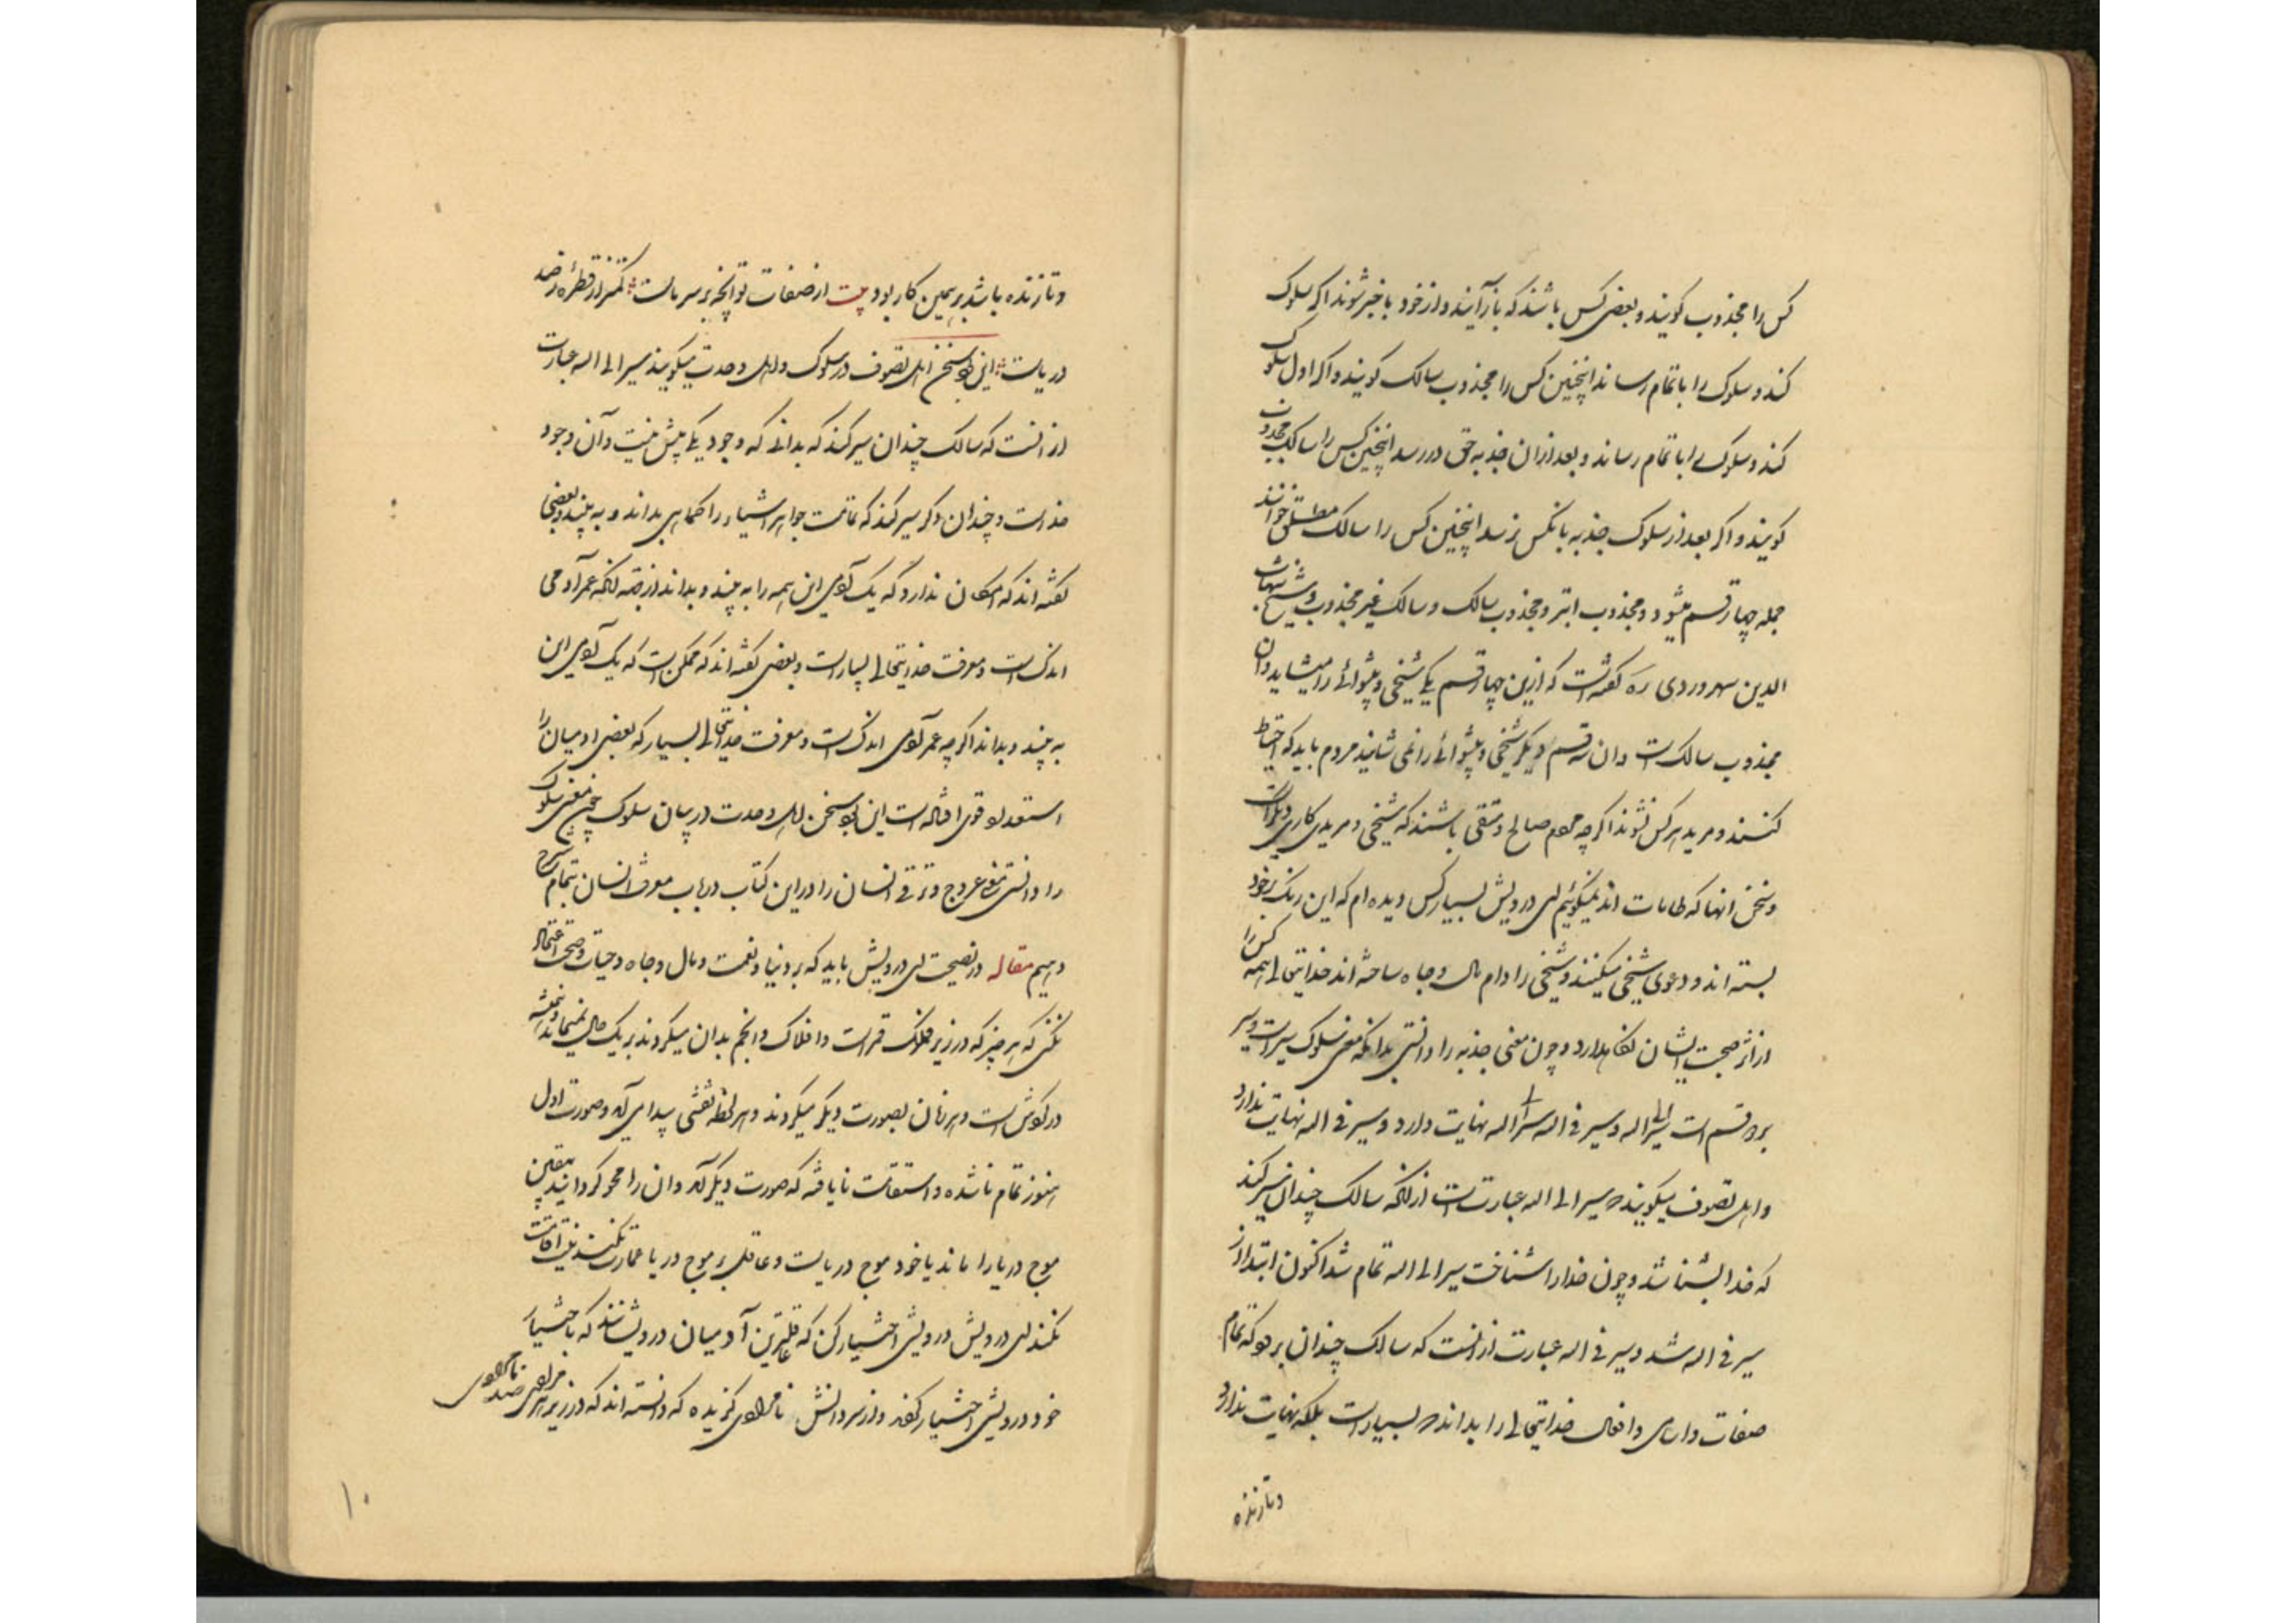 کس را مجذوب کویند و بعضی کس باشند که باز آیند و از خود با خبر شوند اکر سلوک
کند و سلوک را باتمام رساند اینچنین کس را مجذوب سالک کویند و اکر اول سلوک
کند و سلوک را باتمام رساند و بعد ازان جذبه حق در رسد اینچنین کس را سالک مجذوب
کویند و اکر بعد از سلوک جذبه بانکس نرسد اینچنین کس را سالک مطلق خوانند
جمله چهار قسم میشود مجذوب ابتر و مجذوب سالک و سالک غیر مجذوب و شیخ شهاب
الدین سهروردی ره کفته است که ازین چهار قسم یکی شیخی و پیشوائے را میشاید و آن
مجذوب سالک است و ان سه قسم دیکر شیخی و پیشوائے را نمی شایند مردم باید که احتیاط
کنند و مرید هر کس نشوند اکرچه مردم صالح و متقی باشند که شیخی و مریدی کاری دیکر است
و سخن انها که طامات اند نمیکوئیم ای درویش بسیار کس دیده ام که این رنک بر خود
بسته اند و دعوی شیخی میکنند و شیخی را دام مال و جاه ساخته اند خدایتعالی همه کس را
از اثر صحبت ایشان نکاهدارد و چون معنی جذبه را دانستی بدانکه معنی سلوک سیر است و سیر
بر دو قسم است سیر الی اله و سیر فی اله سیر الی اله نهایت دارد و سیر فی اله نهایت ندارد
و اهل تصوف میکویند که سیر الی اله عبارت است از انکه سالک چندان سیر کند
که خدا بشناسد و چون خدا را شناخت سیر الی اله تمام شد اکنون ابتدا از
سیر فی اله شد و سیر فی اله عبارت از انست که سالک چندان برود که تمام
صفات و اسامی و افعال خدایتعالی را بداند که بسیار است بلکه نهایت ندارد
و تا زنده
و تا زنده باشد بر همین کار بود بیت از صفات تو انچه بر سر ماست کمتر از قطرهٔ ز صد
دریاست این بود سخن اهل تصوف در سلوک و اهل وحدت میکویند سیر الی اله عبارت
از انست که سالک چندان سیر کند که بداند که وجود یکی بیش نیست و آن وجود
خداست و چندان دکر سیر کند که تمامت جواهر اشیاء را کماهی بداند و به بیند و بعضی
کفته اند که امکان ندارد که یک آدمی این همه را به بیند و بداند از جهة انکه عمر آدمی
اندک است و معرفت خدایتعالی بسیار است و بعضی کفته اند که ممکن است که یک آدمی این
به بیند و بداند اکرچه عمر آدمی اندک است و معرفت خدایتعالی بسیار که بعضی ادمیان را
استعداد قوی افتاده است این بود سخن اهل وحدت در بیان سلوک چون معنی سلوک
را دانستی معنی عروج و ترقی انسان را در این کتاب در باب معرفت انسان بتمام شرح
دهیم مقاله در نصیحت ای درویش باید که بر دنیا و نعمت و مال و جاه و حیات و صحت اعتماد
نکنی که هر چیز که در زیر فلک قمر است و افلاک و انجم بدان میکردند بر یک حال نمیماند و همیشه
در کوش است و هر زمان بصورت دیکر میکردند و هر لحظه نقشی پیدا می آید و صورت اول
هنوز تمام ناشده و استقامت نایافته که صورت دیکر آمد و ان را محو کردانید بیقین
موج دریا را ماند یا خود موج دریاست و عاقل بر موج دریا عمارت نکند و نیت اقامت
نکند ای درویش درویشی اختیار کن که عاقلترین آدمیان درویشانند که باختیار
خود درویشی اختیار کرده و از سر دانش نامرادی کزیده که دانسته اند که در زیر هر مرادی صد نامرادی
۱۰